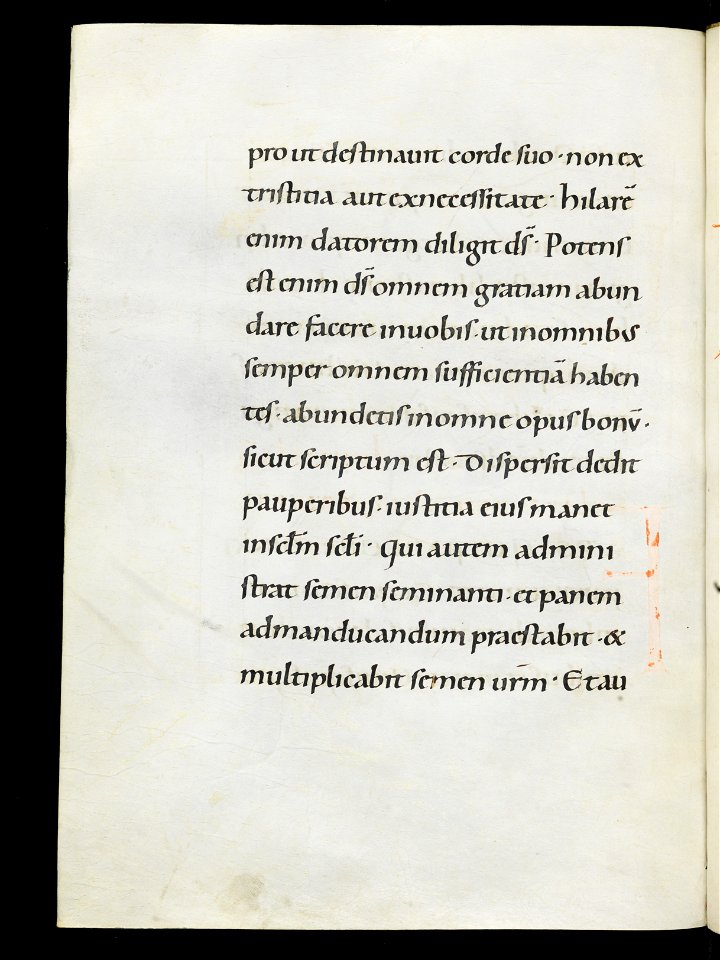 pro ut destinauit corde suo · non ex
tristitia aut ex necessitate · hilarē
enim datorem diligit ds̄ · Potens
est enim ds̄ omnem gratiam abun
dare facere in uobis · ut in omnibus
semper omnem sufficientiā haben
tes · abundetis in omne opus bonū ·
sicut scriptum est · Dispersit dedit
pauperibus · iustitia eius manet
in sclm̄ scl̄i · Qui autem admini
strat semen seminanti · et panem
ad manducandum praestabit · &
multiplicabit semen urm̄ · Et au